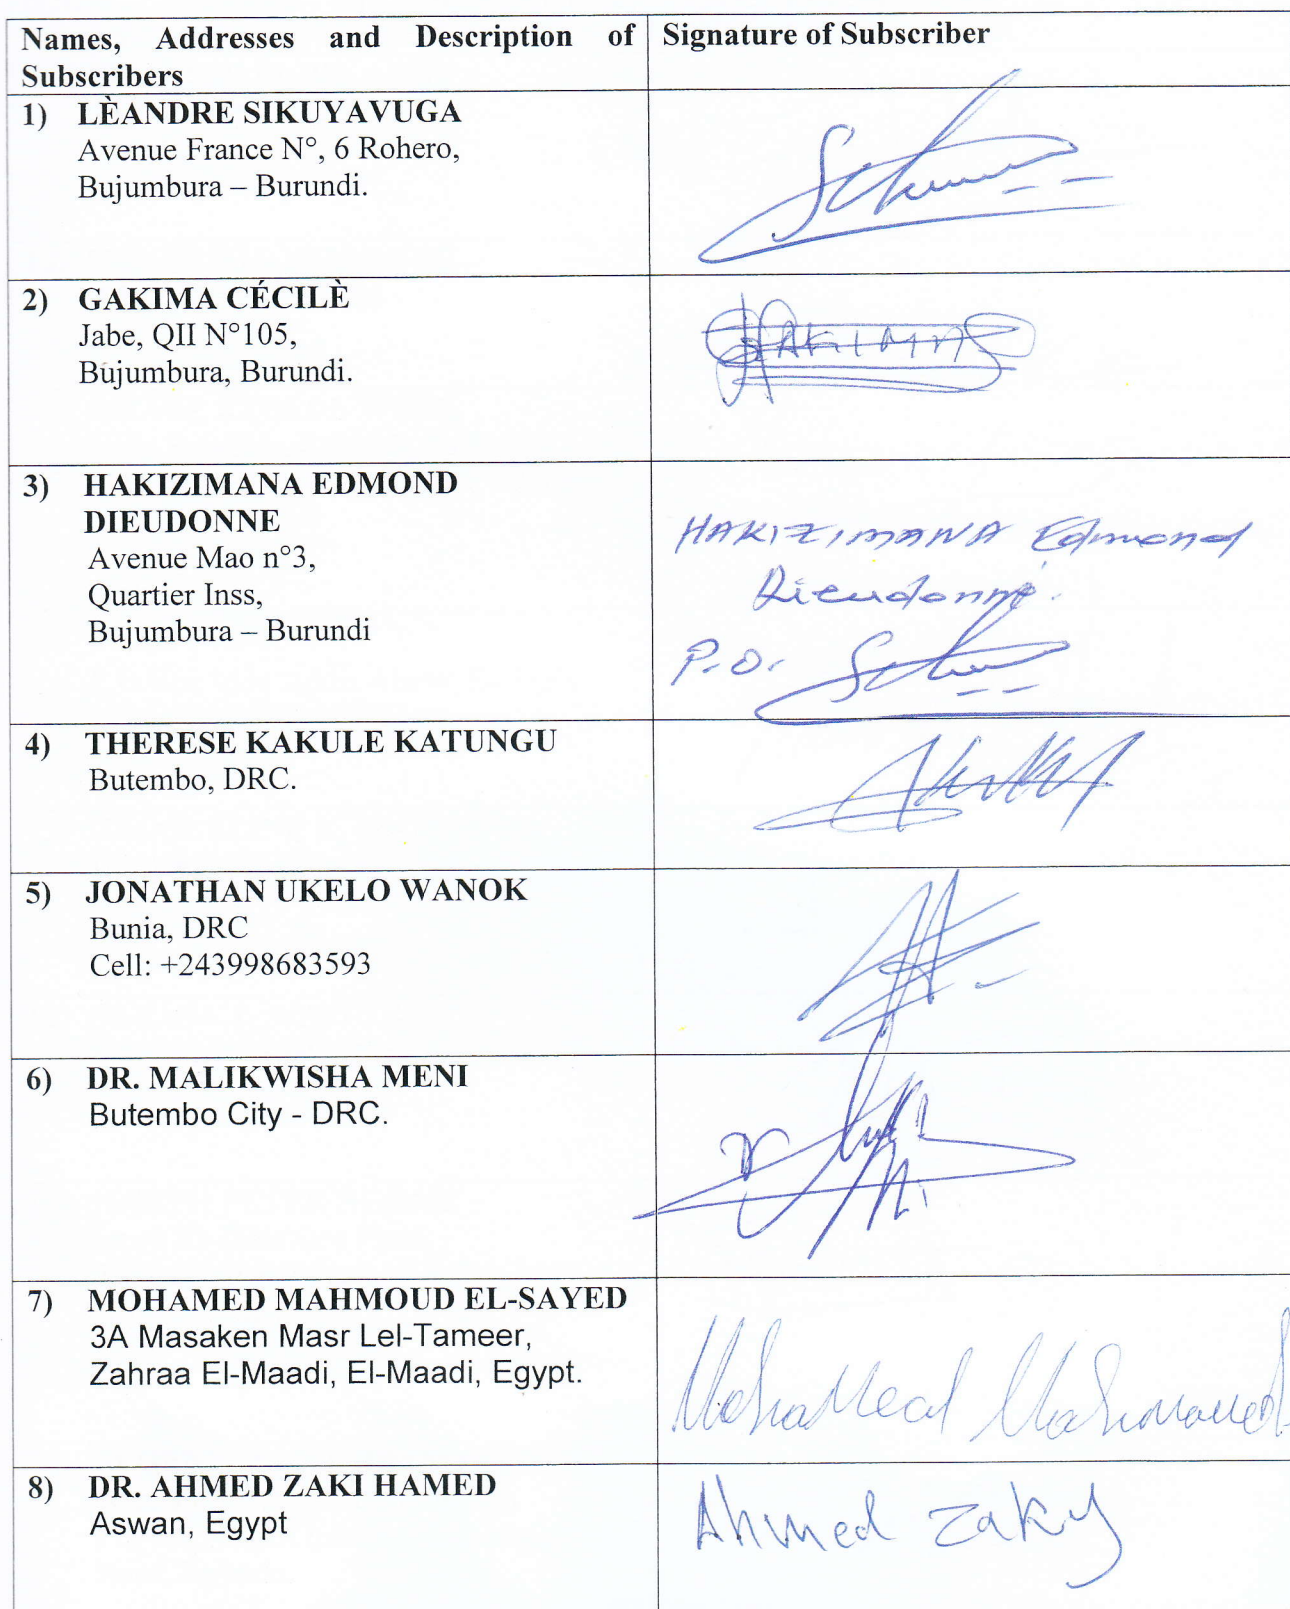 Names, Addresses and Description of Subscribers
Signature of Subscriber
1) LÈANDRE SIKUYAVUGA
Avenue France N°, 6 Rohero,
Bujumbura – Burundi.
2) GAKIMA CÉCILÈ
Jabe, QII N°105,
Bujumbura, Burundi.
GAKIMA
3) HAKIZIMANA EDMOND
DIEUDONNE
Avenue Mao n°3,
Quartier Inss,
Bujumbura – Burundi
HAKIZIMANA Edmond
Dieudonné.
P.O.
4) THERESE KAKULE KATUNGU
Butembo, DRC.
5) JONATHAN UKELO WANOK
Bunia, DRC
Cell: +243998683593
6) DR. MALIKWISHA MENI
Butembo City - DRC.
7) MOHAMED MAHMOUD EL-SAYED
3A Masaken Masr Lel-Tameer,
Zahraa El-Maadi, El-Maadi, Egypt.
8) DR. AHMED ZAKI HAMED
Aswan, Egypt
Ahmed Zaky